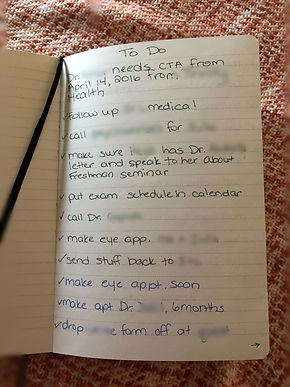 To Do
Dr. needs CTA from
April 14, 2016 from
Health
✓ Follow up medical
✓ call for
✓ make sure has Dr.
letter and speak to her about
Freshman seminar
✓ put exam schedule in calendar
✓ call Dr.
✓ make eye app.
✓ send stuff back to
✓ make eye appt. soon
✓ make apt Dr. , 6 months
✓ drop form off at
→